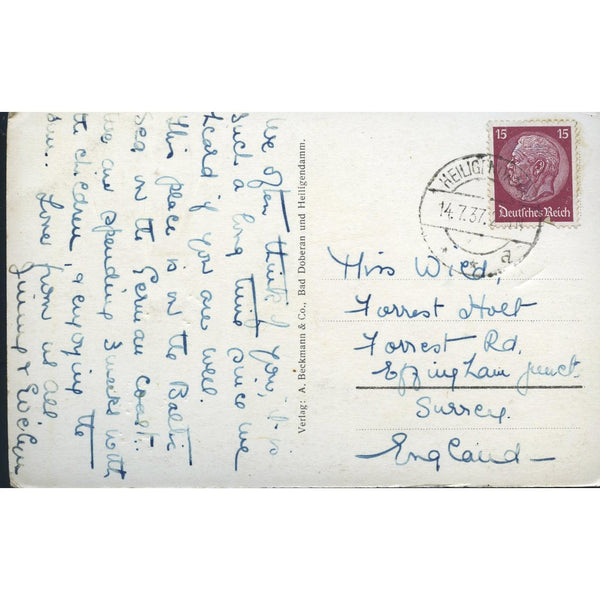 We often think of you, it is
such a long time since we
heard if you are well.
This place is on the Baltic
Sea on the German Coast.
We are spending 3 weeks with
the children, & enjoying the
sun. Love from us all
Jimmy & Evelyn
Verlag: A. Beckmann & Co., Bad Doberan und Heiligendamm.
15 15
Deutsches Reich
14.7.37
a
Miss Wild,
Forrest Holt
Forrest Rd.
Effingham junct.
Surrey.
England